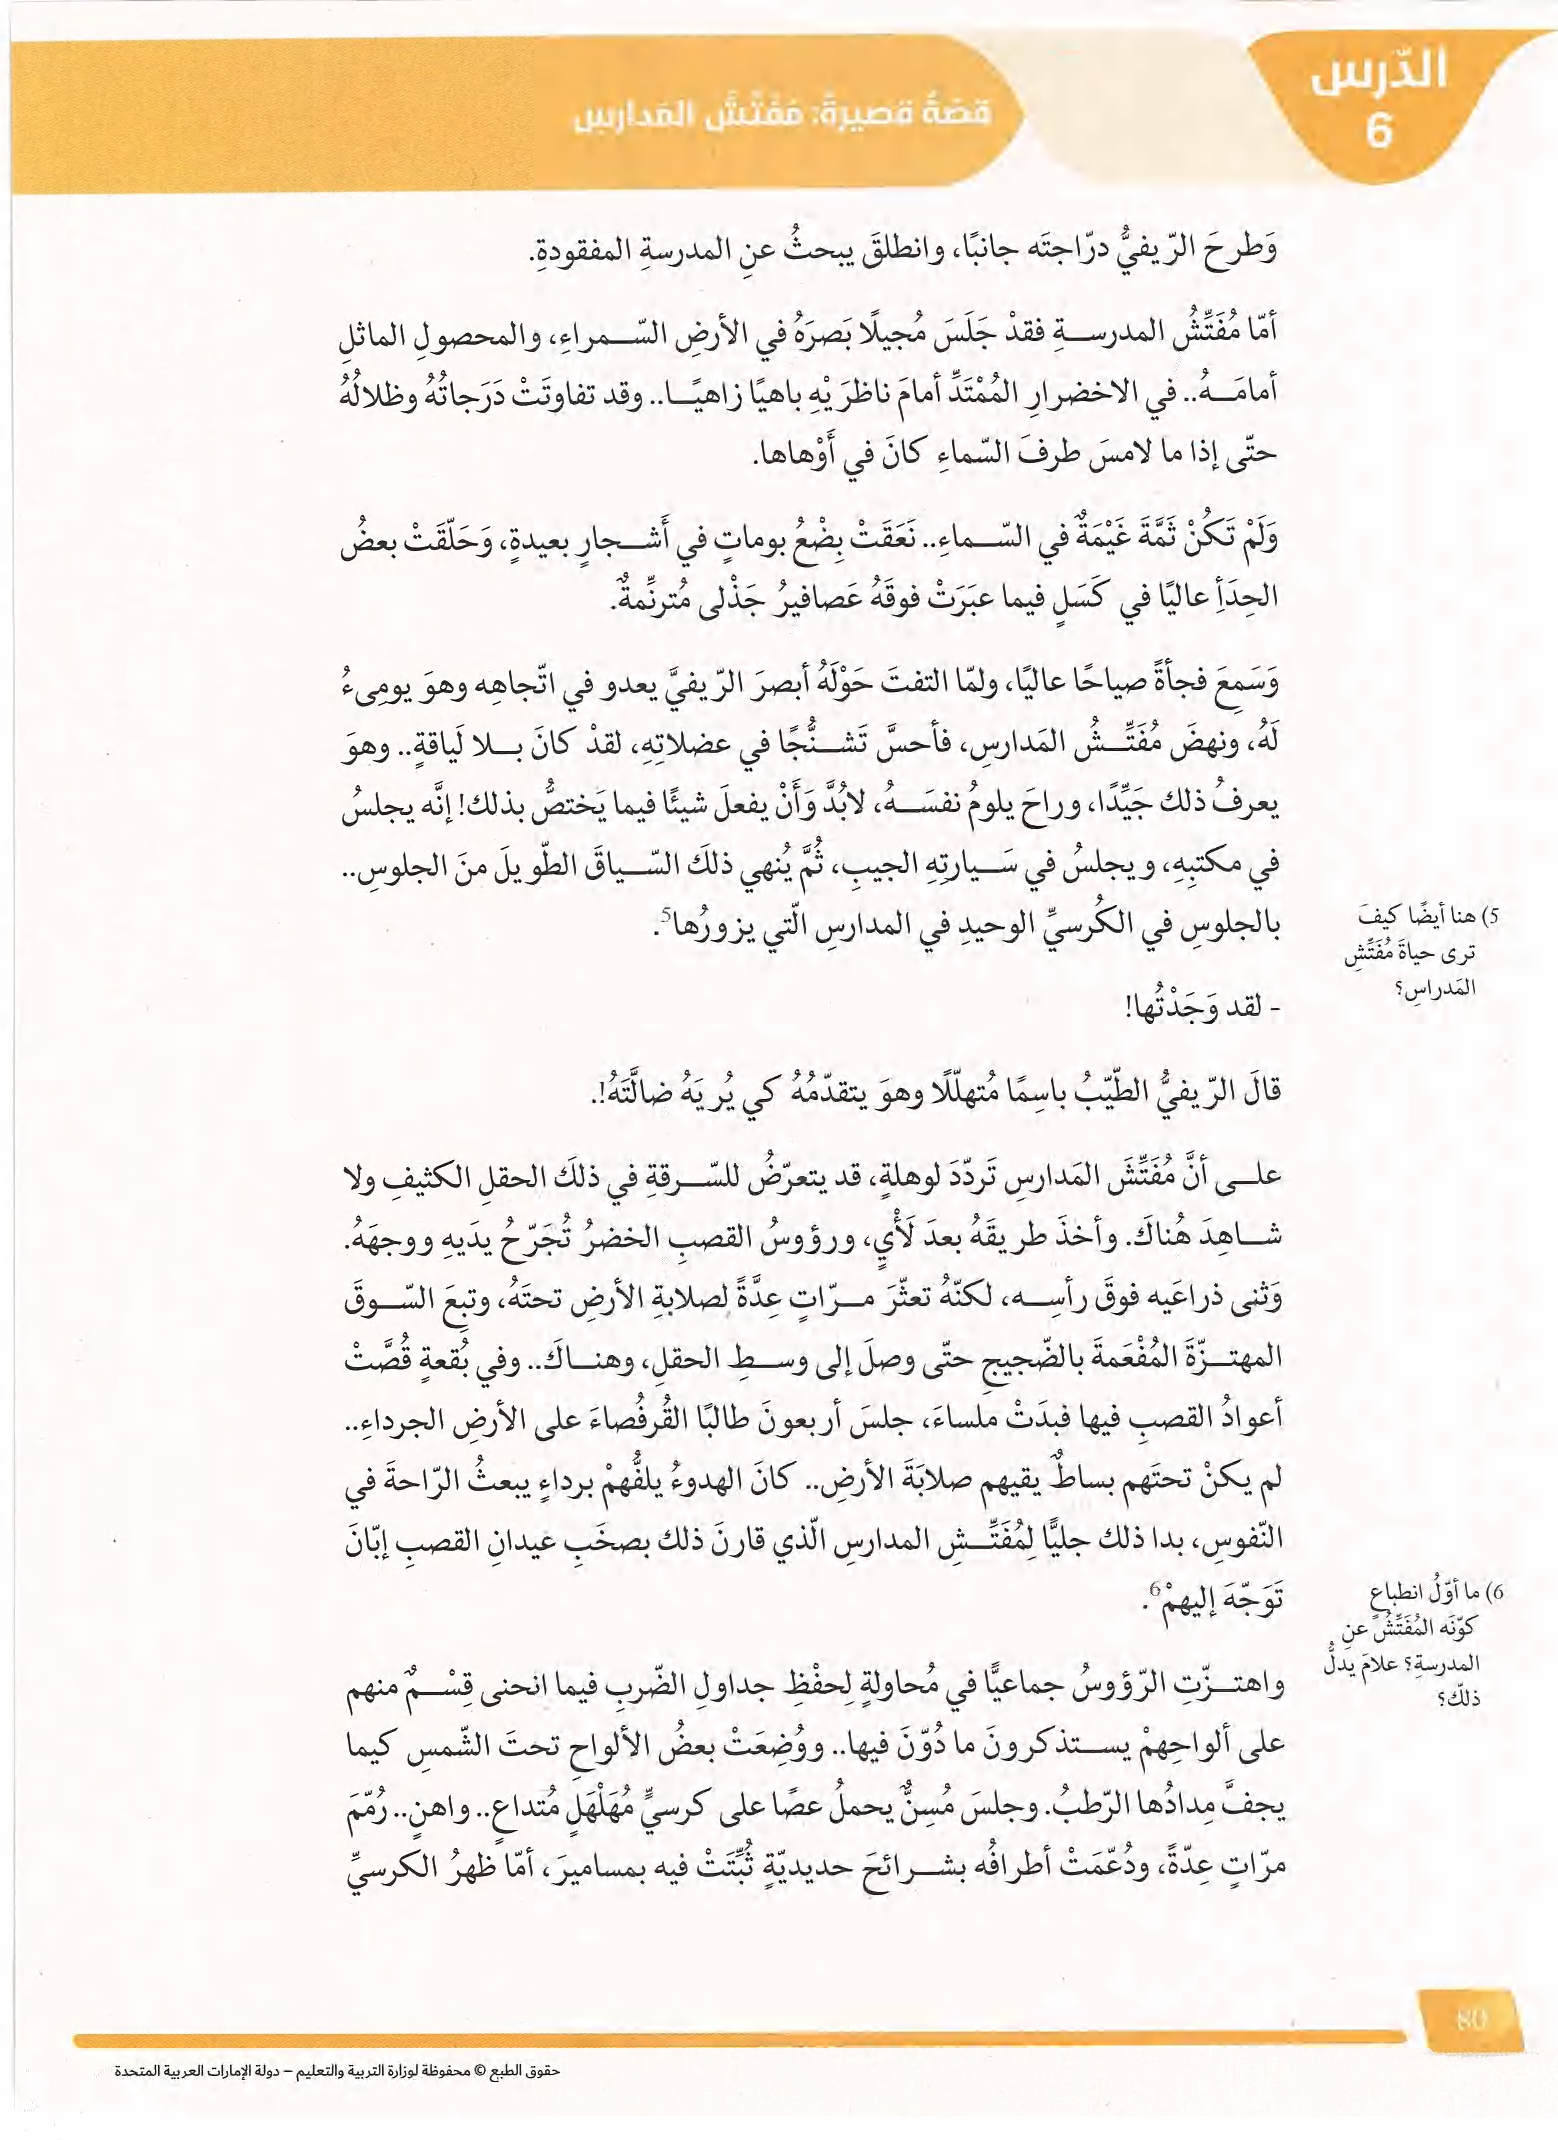 الدّرس
6
قصّةٌ قصيرةٌ: مُفَتِّشُ المَدارِسِ
وَطرحَ الرّيفيُّ درّاجتَه جانبًا، وانطلقَ يبحثُ عنِ المدرسةِ المفقودةِ.
أمّا مُفَتِّشُ المدرسةِ فقدْ جَلَسَ مُجيلًا بَصرَهُ في الأرضِ السّمراءِ، والمحصولِ الماثلِ
أمامَهُ.. في الاخضرارِ المُمْتَدِّ أمامَ ناظرَيْهِ باهيًا زاهيًا.. وقد تفاوتَتْ دَرَجاتُهُ وظلالُهُ
حتّى إذا ما لامسَ طرفَ السّماءِ كانَ في أَوْهاها.
وَلَمْ تَكُنْ ثَمَّةَ غَيْمَةٌ في السّماءِ.. نَعَقَتْ بِضْعُ بوماتٍ في أَشجارٍ بعيدةٍ، وَحَلّقَتْ بعضُ
الحِدَأِ عاليًا في كَسَلٍ فيما عبَرَتْ فوقَهُ عَصافيرُ جَذْلى مُترنِّمةٌ.
وَسَمِعَ فجأةً صياحًا عاليًا، ولمّا التفتَ حَوْلَهُ أبصرَ الرّيفيَّ يعدو في اتّجاهِه وهوَ يومِىءُ
لَهُ، ونهضَ مُفَتِّشُ المَدارسِ، فأحسَّ تَشنُّجًا في عضلاتِهِ، لقدْ كانَ بلا لَياقةٍ.. وهوَ
يعرفُ ذلك جَيِّدًا، وراحَ يلومُ نفسَهُ، لابُدَّ وَأَنْ يفعلَ شيئًا فيما يَختصُّ بذلك! إنَّه يجلسُ
في مكتبِهِ، ويجلسُ في سَيارتِهِ الجيبِ، ثُمَّ يُنهي ذلكَ السّياقَ الطّويلَ منَ الجلوسِ..
بالجلوسِ في الكُرسيِّ الوحيدِ في المدارسِ الّتي يزورُها5.
5) هنا أيضًا كيفَ
ترى حياةَ مُفَتِّشِ
المَدراسِ؟
- لقد وَجَدْتُها!
قالَ الرّيفيُّ الطّيّبُ باسِمًا مُتهلّلًا وهوَ يتقدّمُهُ كي يُريَهُ ضالَّتَهُ!.
على أنَّ مُفَتِّشَ المَدارسِ تَردّدَ لوهلةٍ، قد يتعرّضُ للسّرقةِ في ذلكَ الحقلِ الكثيفِ ولا
شاهِدَ هُناكَ. وأخذَ طريقَهُ بعدَ لَأْيٍ، ورؤوسُ القصبِ الخضرُ تُجَرّحُ يدَيهِ ووجهَهُ.
وَثنى ذراعَيه فوقَ رأسِه، لكنّهُ تعثّرَ مرّاتٍ عِدَّةً لصلابةِ الأرضِ تحتَهُ، وتبِعَ السّوقَ
المهتزّةَ المُفْعَمةَ بالضّجيجِ حتّى وصلَ إلى وسطِ الحقلِ، وهناكَ.. وفي بُقعةٍ قُصَّتْ
أعوادُ القصبِ فيها فبدَتْ ملساءَ، جلسَ أربعونَ طالبًا القُرفُصاءَ على الأرضِ الجرداءِ..
لم يكنْ تحتَهم بساطٌ يقيهم صلابَةَ الأرضِ.. كانَ الهدوءُ يلفُّهمْ برداءٍ يبعثُ الرّاحةَ في
النّفوسِ، بدا ذلك جليًّا لِمُفَتِّشِ المدارسِ الّذي قارنَ ذلك بصخَبِ عيدانِ القصبِ إبّانَ
تَوَجّهَ إليهمْ6.
6) ما أوّلُ انطباعٍ
كوّنَه المُفَتِّشُ عنِ
المدرسةِ؟ علامَ يدلُّ
ذلّك؟
واهتزّتِ الرّؤوسُ جماعيًّا في مُحاولةٍ لِحفْظِ جداولِ الضّربِ فيما انحنى قِسْمٌ منهم
على ألواحِهمْ يستذكرونَ ما دُوّنَ فيها.. ووُضِعَتْ بعضُ الألواحِ تحتَ الشّمسِ كيما
يجفَّ مِدادُها الرّطبُ. وجلسَ مُسِنٌّ يحملُ عصًا على كرسيٍّ مُهَلْهَلٍ مُتداعٍ.. واهنٍ.. رُمّمَ
مرّاتٍ عِدّةً، ودُعّمَتْ أطرافُه بشرائحَ حديديّةٍ ثُبِّتَتْ فيه بمساميرَ، أمّا ظهرُ الكرسيِّ
80
حقوق الطبع © محفوظة لوزارة التربية والتعليم – دولة الإمارات العربية المتحدة